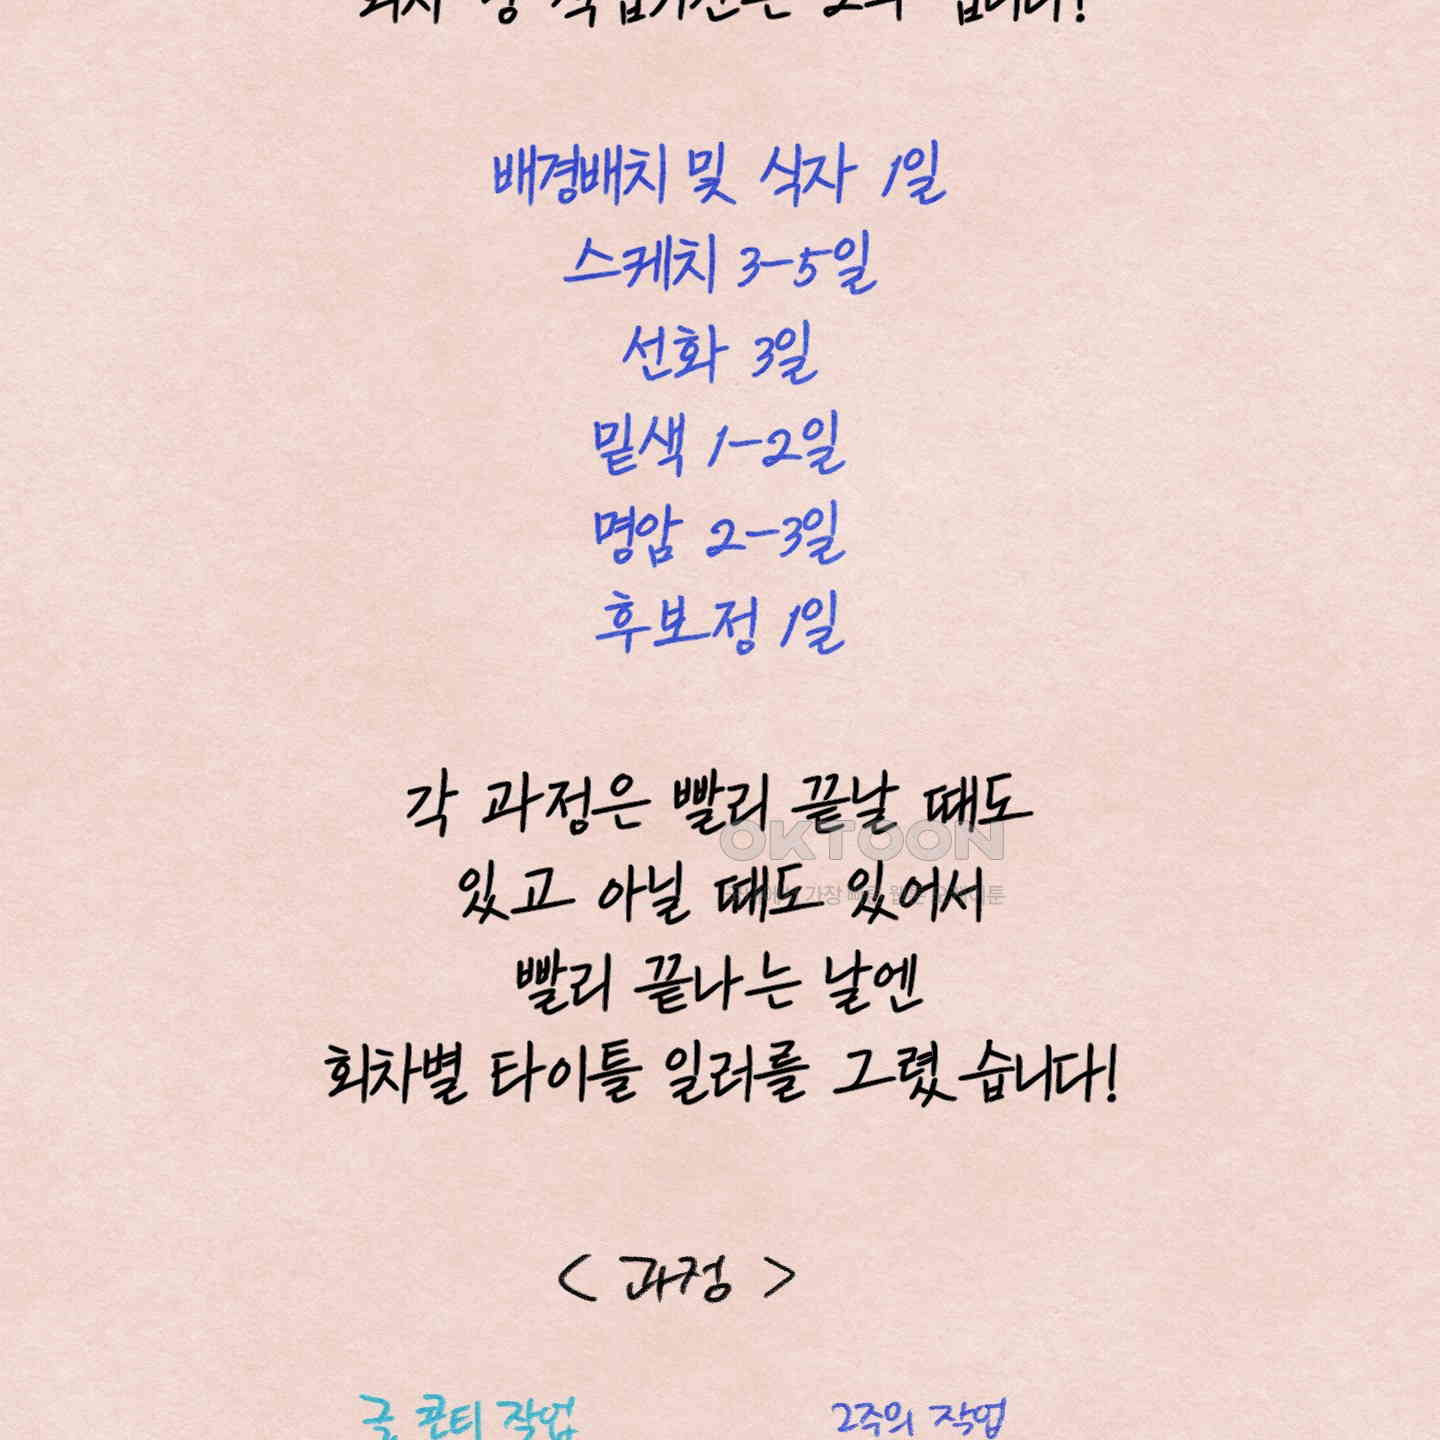 회차 당 작업기간은 2주 입니다!
배경배치 및 식자 1일
스케치 3-5일
선화 3일
밑색 1-2일
명암 2-3일
후보정 1일
각 과정은 빨리 끝날 때도
OKTOON
있고 아닐 때도 있어서
빨리 끝나는 날엔
회차별 타이틀 일러를 그렸습니다!
< 과정 >
글 콘티 작업 2주의 작업